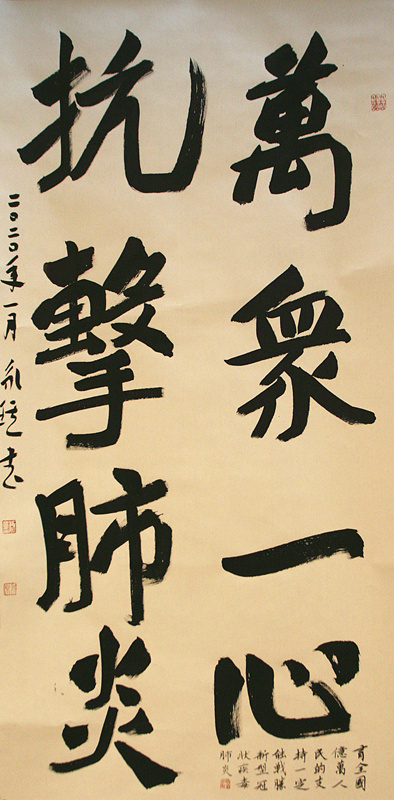 萬衆一心
抗擊肺炎
有全國
億萬人
民的支
持一定
能戰勝
新型冠
狀病毒
肺炎
二〇二〇年一月永